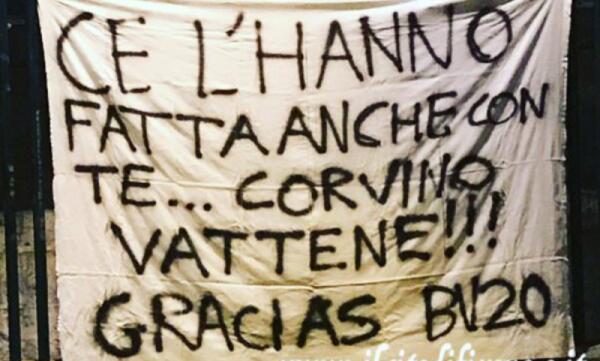 CE L'HANNO
FATTA ANCHE CON
TE... CORVINO
VATTENE!!!
GRACIAS BV20